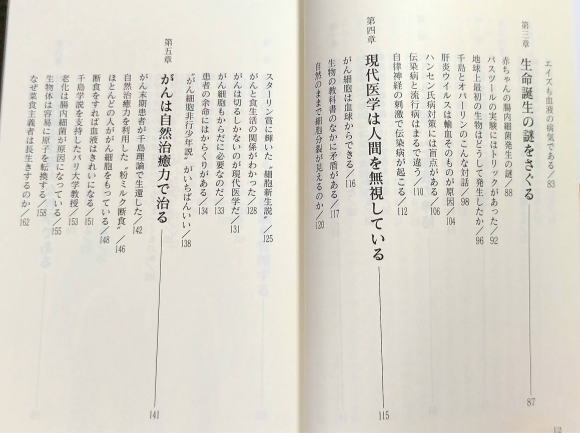 エイズも血液の病気である／83
第三章 生命誕生の謎をさぐる 87
赤ちゃんの腸内細菌発生の謎／88
パスツールの実験にはトリックがあった／92
地球上最初の生物はどうして発生したか／96
千島とオパーリンのこんな対話／98
肝炎ウイルスは輸血そのものが原因／104
ハンセン氏病対策には盲点がある／106
伝染病と流行病はまるで違う／110
自律神経の刺激で伝染病が起こる／112
第四章 現代医学は人間を無視している 115
がん細胞は血球からできる／116
生物の教科書のなかに矛盾がある／117
自然のままで細胞分裂が見えるのか／120
12
スターリン賞に輝いた“細胞新生説”／125
がんと食生活の関係がわかった／128
がんは切るしかないのが現代医学だ／131
がん細胞もからだに必要なのだ／133
患者の余命にはからくりがある／134
“がん細胞非行少年説”がいちばんいい／138
第五章 がんは自然治癒力で治る 141
がん末期患者が千島理論で生還した／142
自然治癒力を利用した“粉ミルク断食”／146
ほとんどの人ががん細胞をもっている／148
断食をすれば血液はきれいになる／151
千島学説を支持したパリ大学教授／153
老化は腸内細菌が原因になっている／155
生物体は容易に原子を転換する／158
なぜ菜食主義者は長生きするのか／162